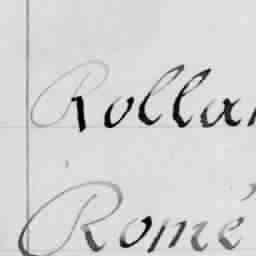 Rolla
Romé